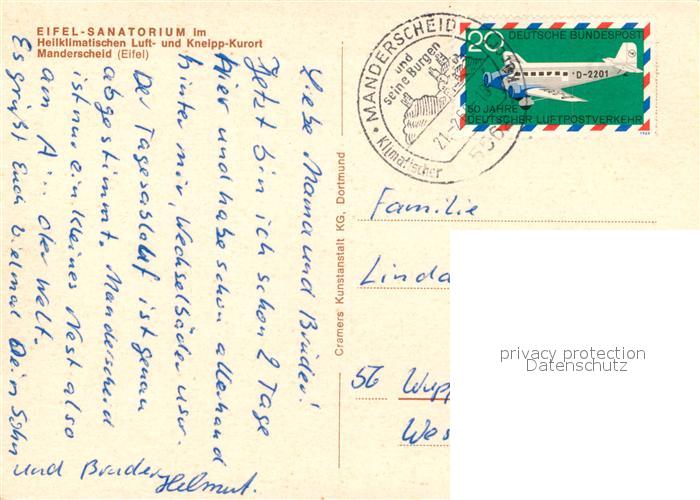 EIFEL-SANATORIUM im
Heilklimatischen Luft- und Kneipp-Kurort
Manderscheid (Eifel)
Liebe Mama und Brüder!
Jetzt bin ich schon 2 Tage
hier und habe schon allerhand
hinter mir, Wechselbäder usw.
Der Tagesablauf ist genau
abgestimmt. Manderscheid
ist nur ein kleines Nest also
am A... der Welt.
Es grüßt Euch vielmal Dein Sohn
und Bruder Helmut.
Cramers Kunstanstalt KG, Dortmund
MANDERSCHEID
und
seine Burgen
Klimatischer
21.-2.
556
20
DEUTSCHE BUNDESPOST
D-2201
50 JAHRE
DEUTSCHER LUFTPOSTVERKEHR
1969
Familie
Linda
56 Wupp
Wes
privacy protection
Datenschutz